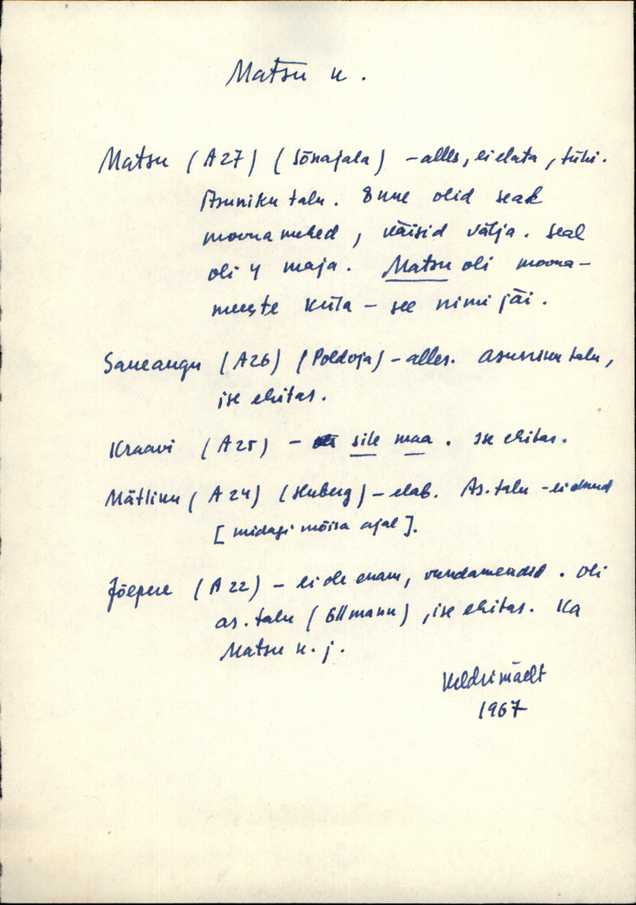 Matsu k.
Matsu (A27) (Sõnajala) – alles, ei elata, tühi.
Asuniku talu. Enne olid seal
moonamehed, käisid välja. Seal
oli 4 maja. Matsu oli moona-
meeste küla – see nimi jäi.
Saueaugu (A26) (Poldoja) – alles. Asuniku talu,
ise ehitas.
Kraavi (A25) – sile maa. Ise ehitas.
Mätliku (A24) (Huberg) – elab. As. talu – ei olnud
[midagi mõisa ajal].
Jõepere (A22) – ei ole enam, vundamendid. Oli
as. talu (Ellmann), ise ehitas. Ka
Matsu k. j.
Keldrimäelt
1967